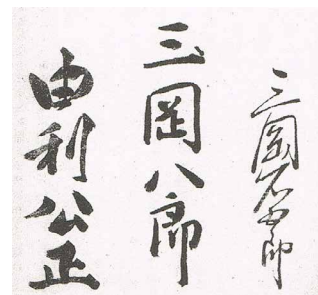 三岡石五郎
三岡八郎
由利公正